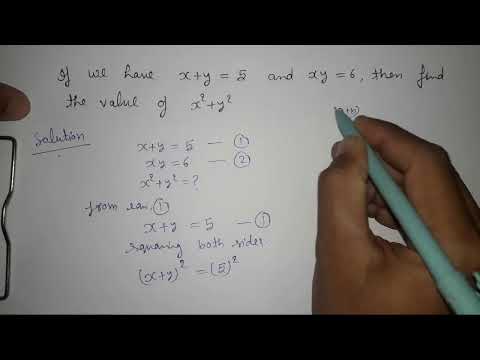 If we have x+y = 5 and xy = 6, then find
the value of x²+y²
Solution
x+y = 5 — ①
xy = 6 — ②
x²+y² = ?
from eqn. ①
x+y = 5 — ①
squaring both sides
(x+y)² = (5)²